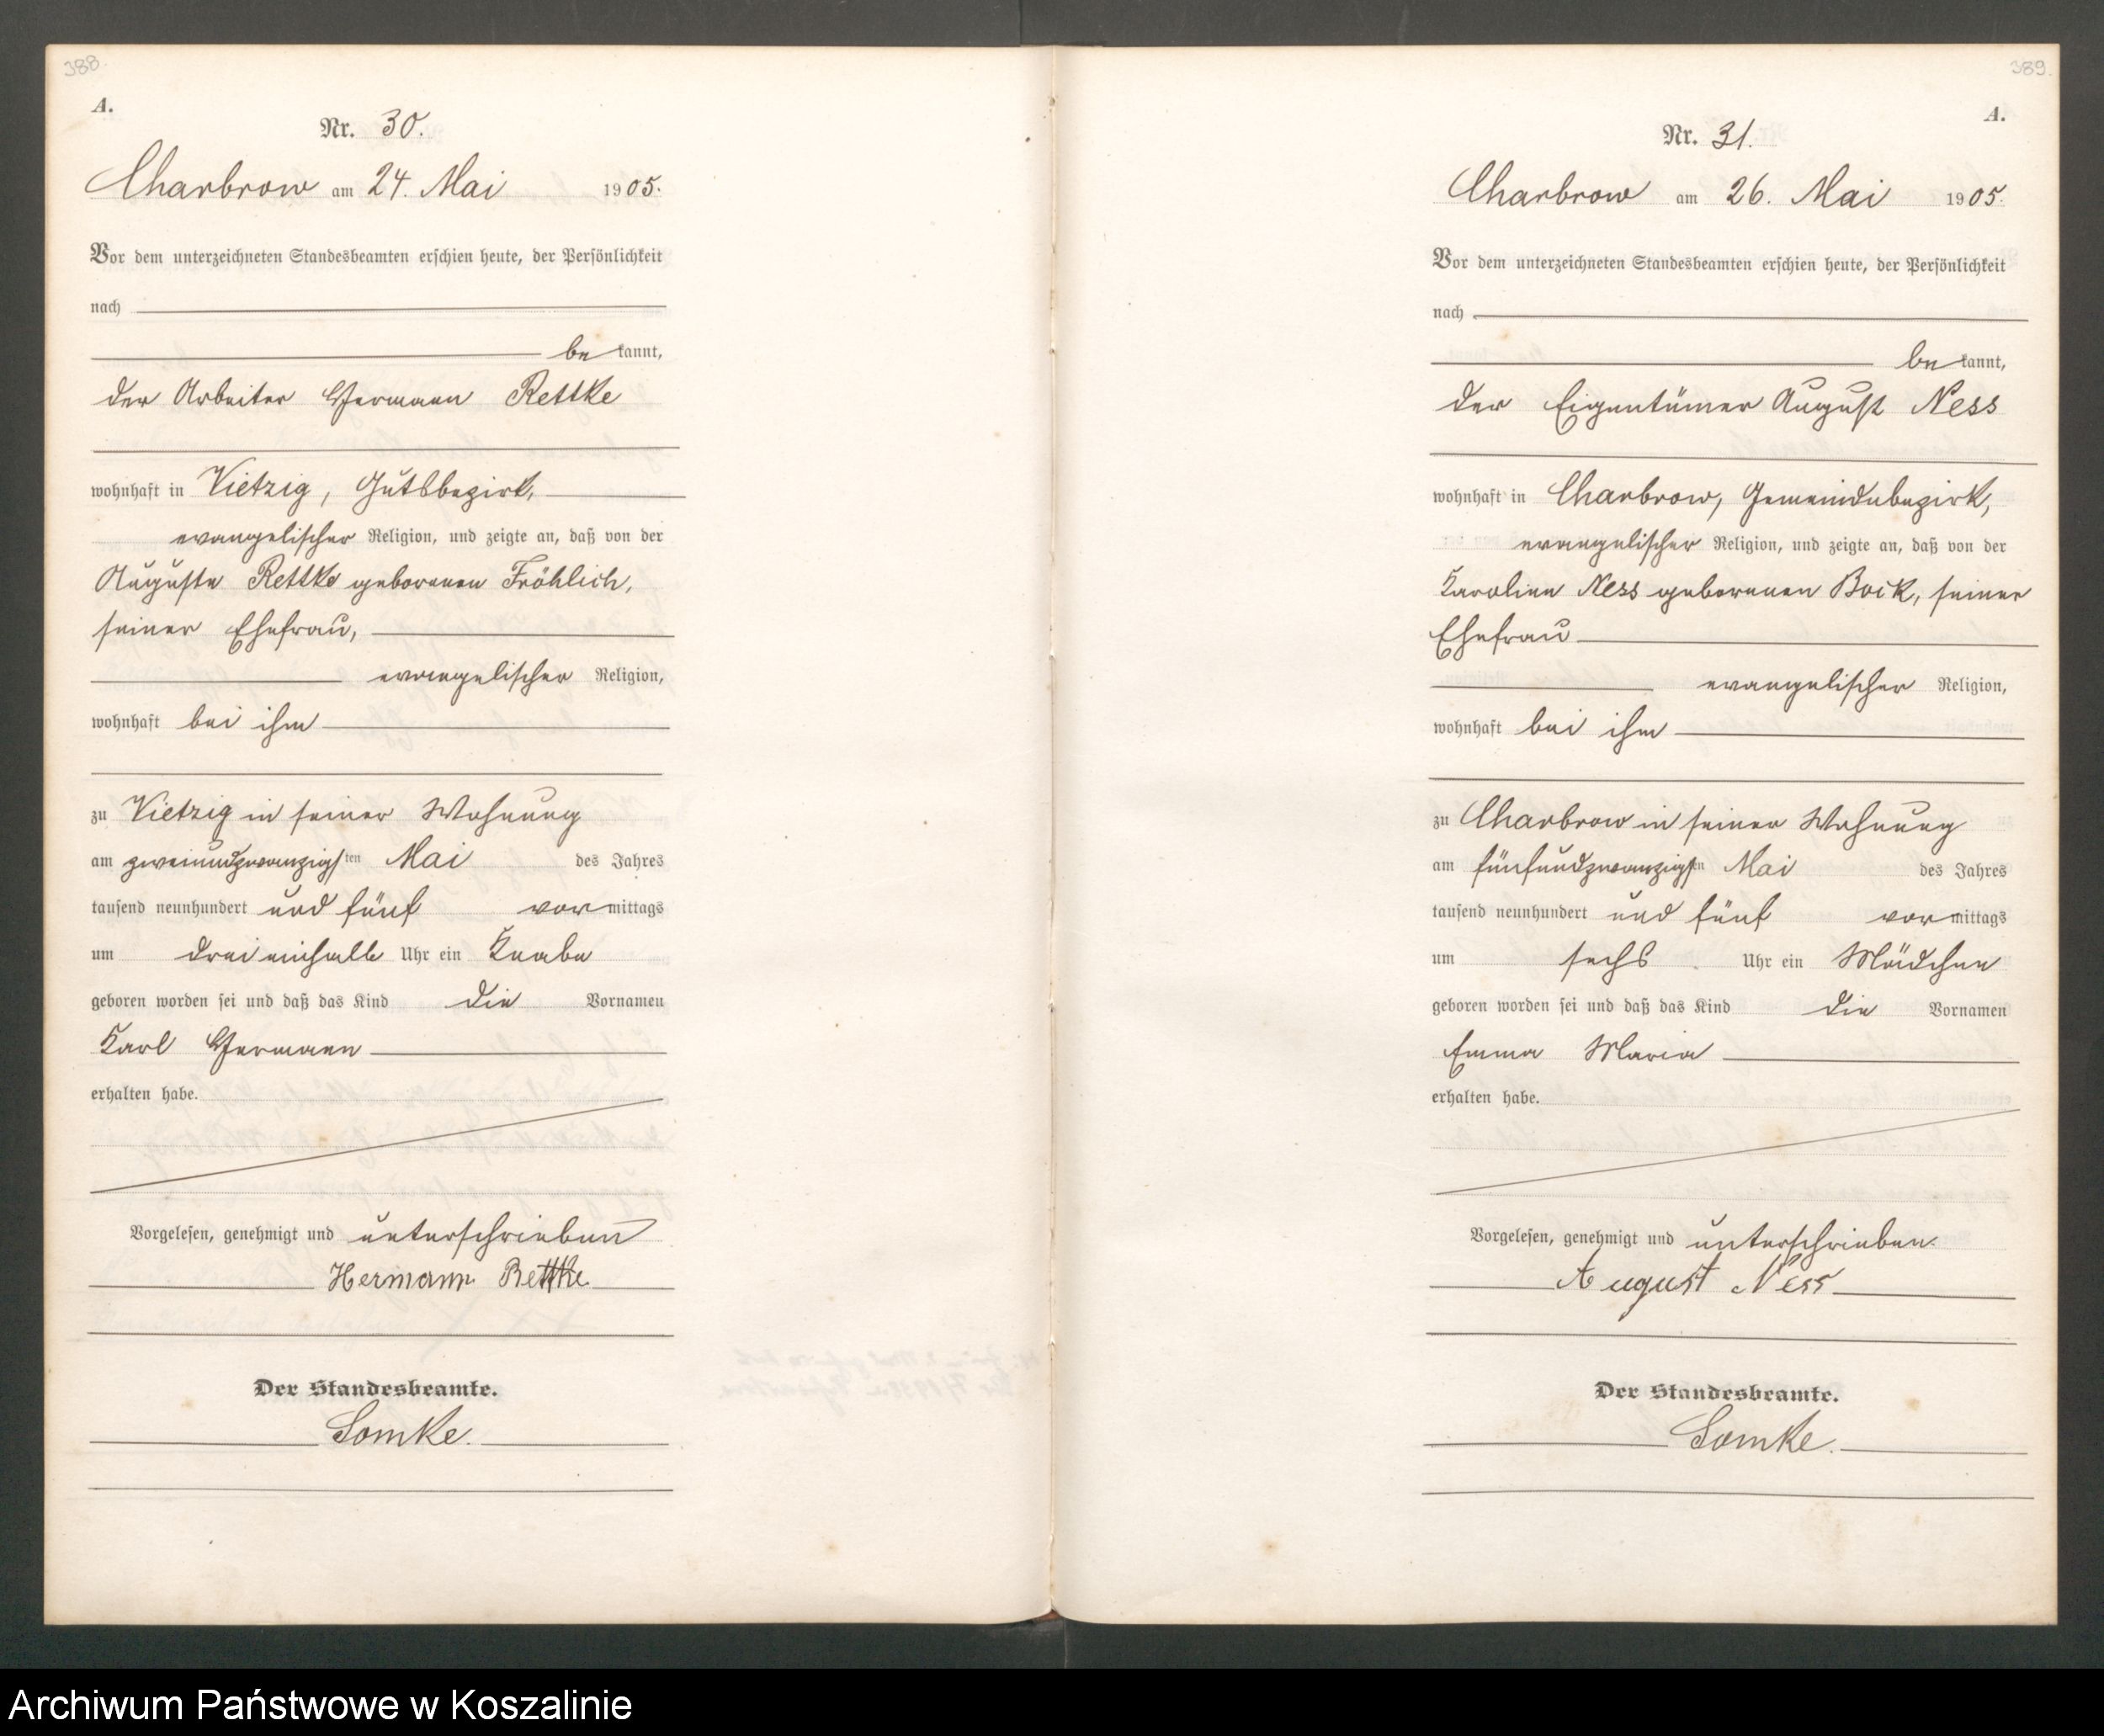 388.
A.
Nr. 30.
Charbrow am 24. Mai 1905.
Vor dem unterzeichneten Standesbeamten erschien heute, der Persönlichkeit
nach
be kannt,
der Arbeiter Hermann Rettke
wohnhaft in Vietzig, Gutsbezirk,
evangelischer Religion, und zeigte an, daß von der
Auguste Rettke geborenen Fröhlich,
seiner Ehefrau,
evangelischer Religion,
wohnhaft bei ihm
zu Vietzig in seiner Wohnung
am zweiundzwanzigsten Mai des Jahres
tausend neunhundert und fünf vormittags
um drei einhalb Uhr ein Knabe
geboren worden sei und daß das Kind die Vornamen
Karl Hermann
erhalten habe.
Vorgelesen, genehmigt und unterschrieben
Hermann Rettke
Der Standesbeamte.
Lomke.
389.
A.
Nr. 31.
Charbrow am 26. Mai 1905.
Vor dem unterzeichneten Standesbeamten erschien heute, der Persönlichkeit
nach
be kannt,
der Eigentümer August Ness
wohnhaft in Charbrow, Gemeindebezirk,
evangelischer Religion, und zeigte an, daß von der
Karoline Ness geborenen Bock, seiner
Ehefrau
evangelischer Religion,
wohnhaft bei ihm
zu Charbrow in seiner Wohnung
am fünfundzwanzigsten Mai des Jahres
tausend neunhundert und fünf vormittags
um sechs Uhr ein Mädchen
geboren worden sei und daß das Kind die Vornamen
Emma Maria
erhalten habe.
Vorgelesen, genehmigt und unterschrieben.
August Ness
Der Standesbeamte.
Lomke.
Archiwum Państwowe w Koszalinie